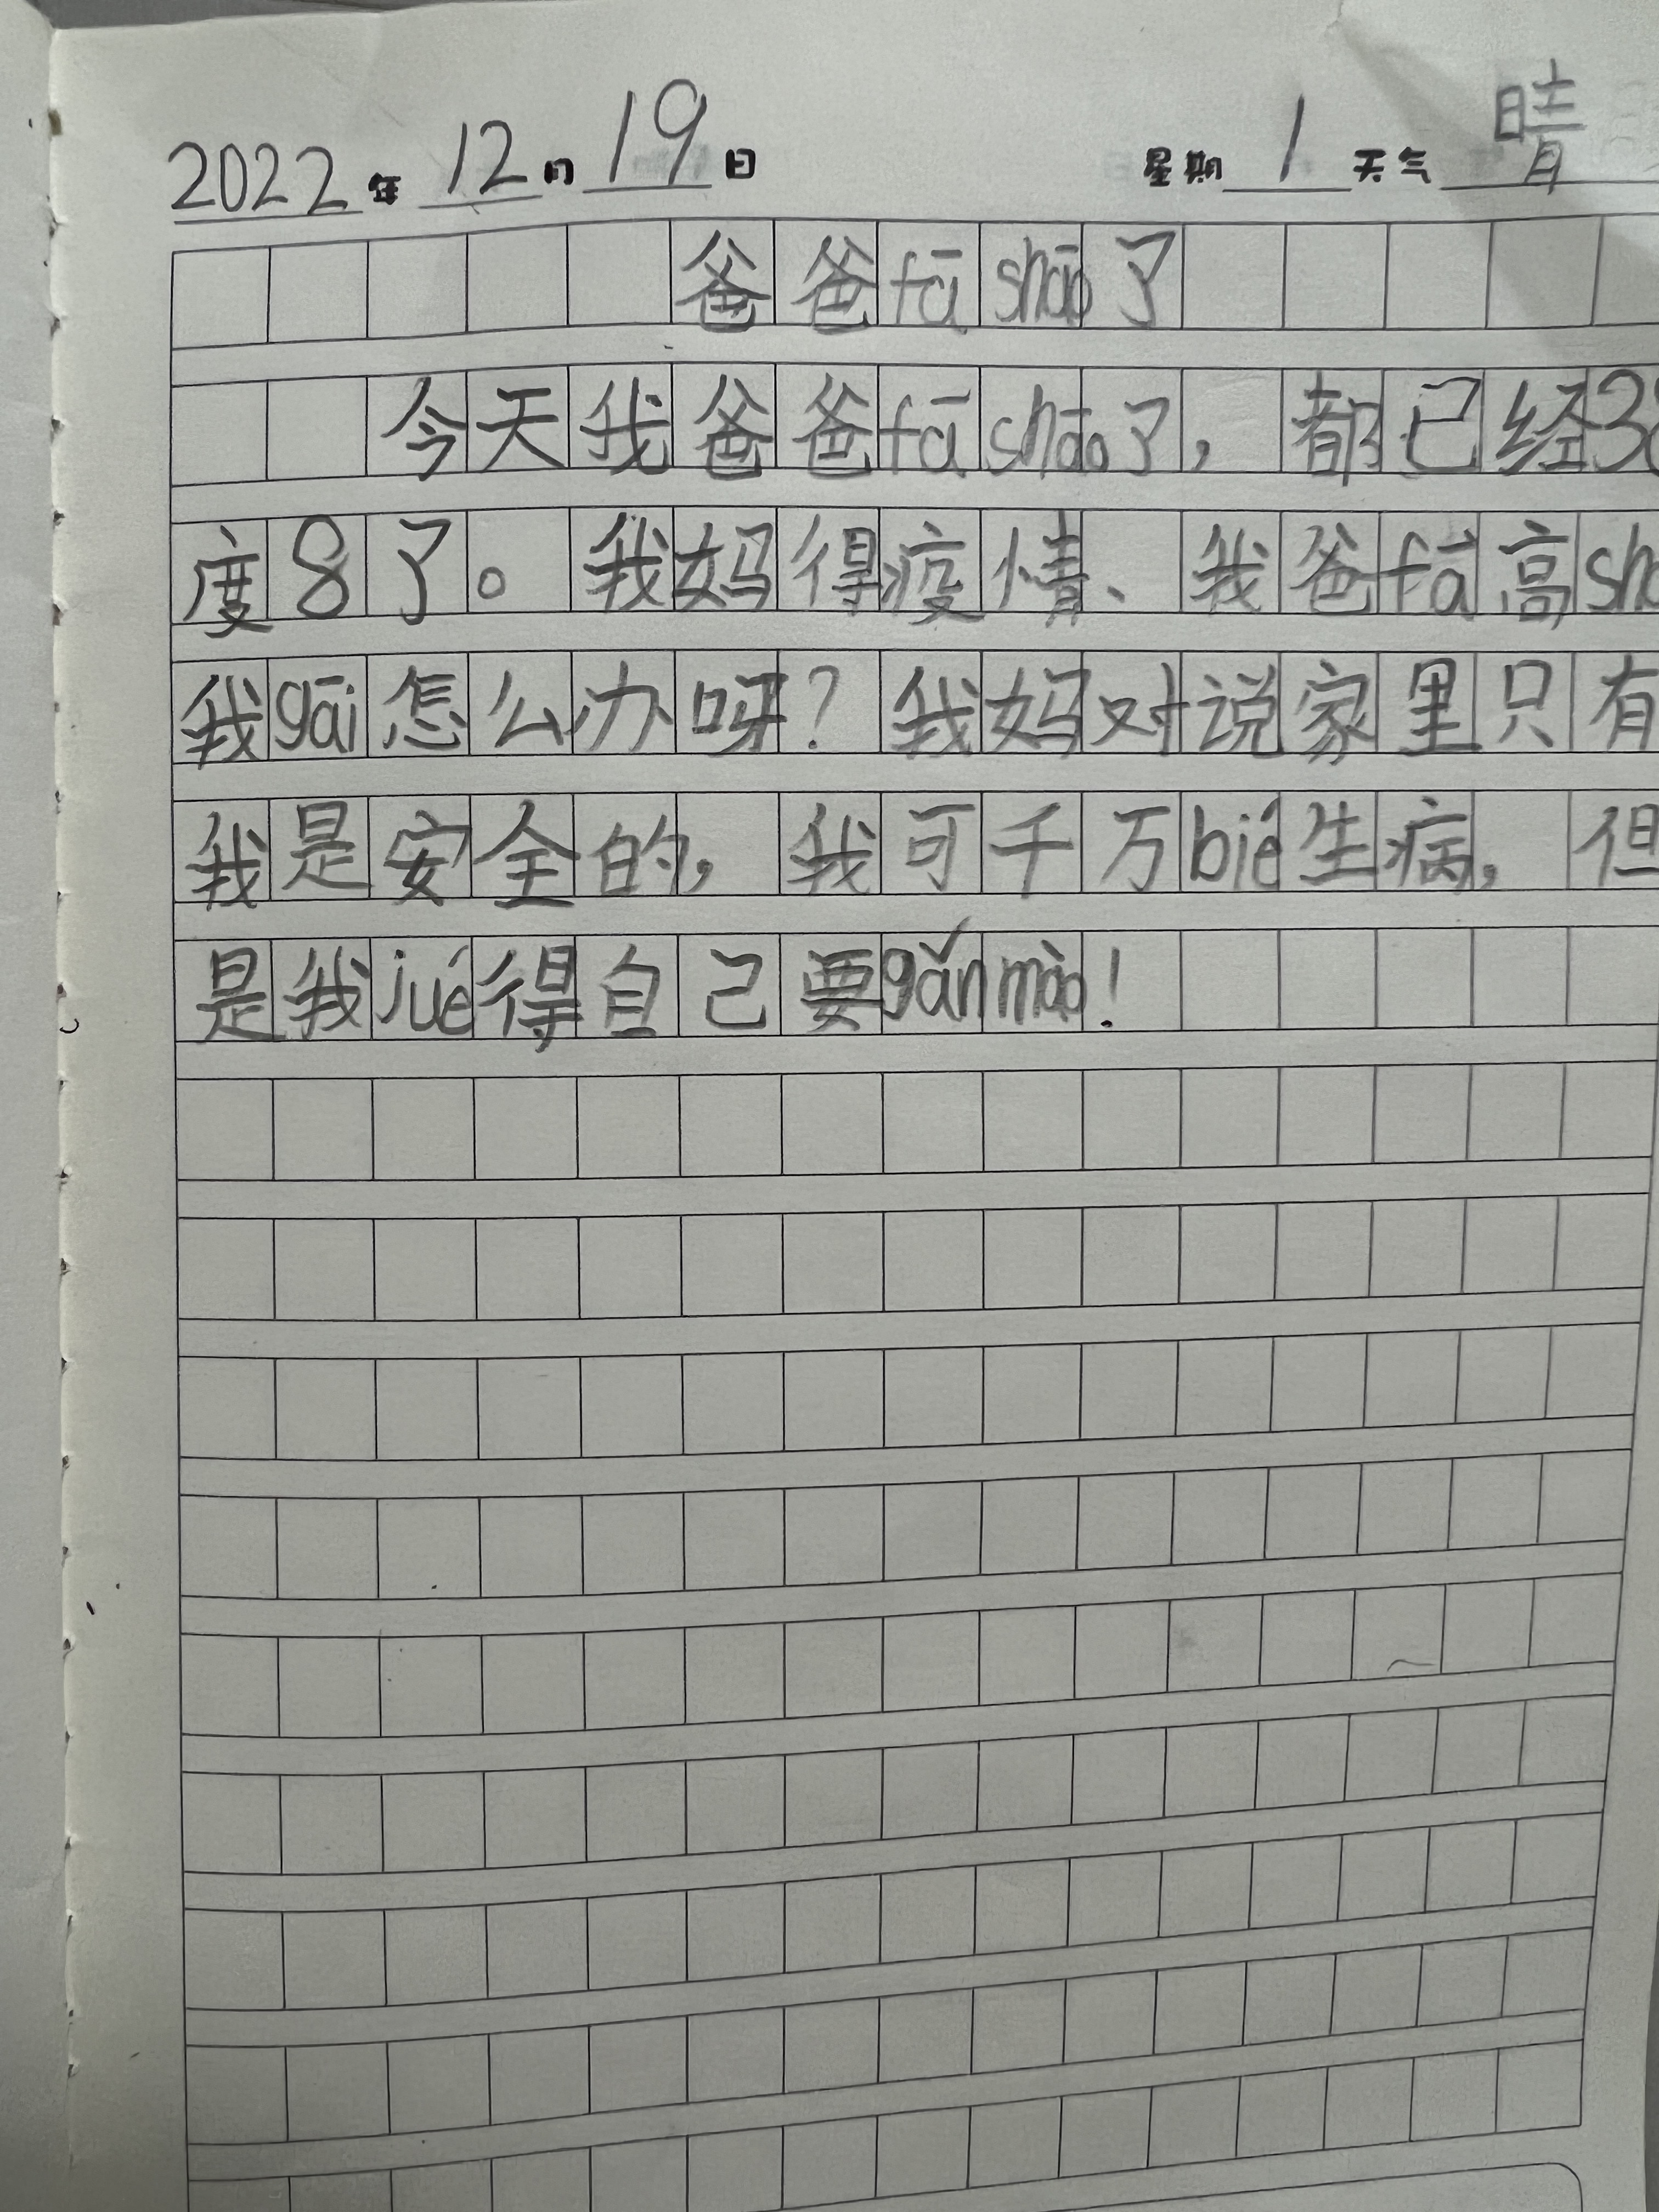 2022年 12月 19日 星期 1 天气 晴
爸爸fā shāo了
今天我爸爸fā shāo了，都已经38
度8了。我妈得疫情、我爸fā高
我gāi怎么办呀？我妈对说家里只有
我是安全的，我可千万bié生病，但
是我jué得自己要gǎn mào！